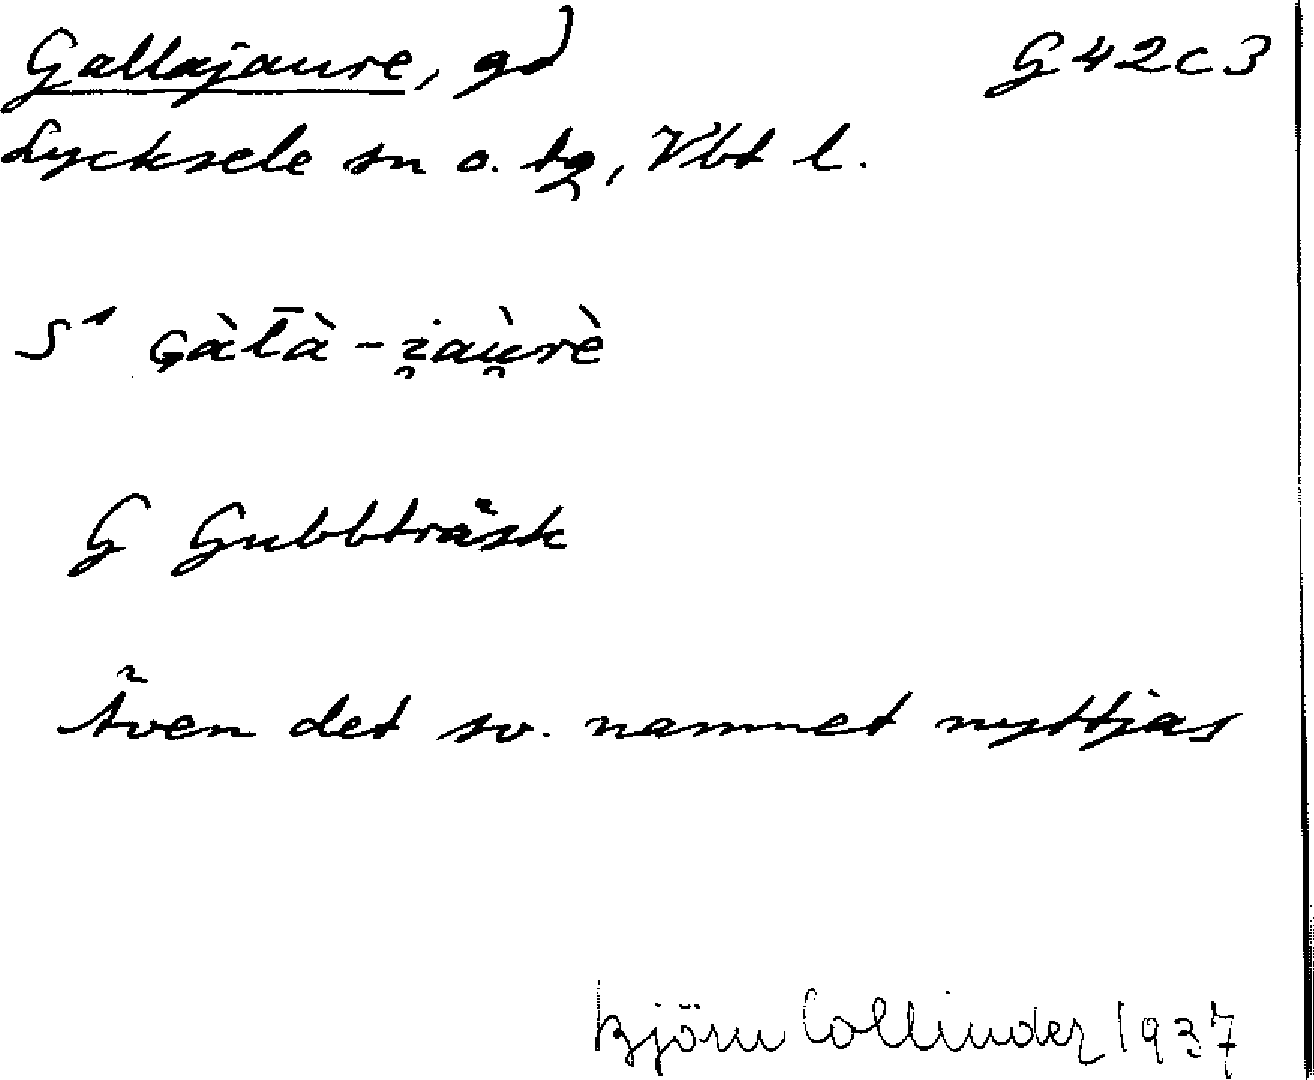 Gallajaure, gd G 42 c 3
Lycksele sn o. tg, Vbt l.
S¹ ɢàl̄à-i̯aù̯rè
G Gubbträsk
Även det sv. namnet nyttjas
Björn Collinder 1937